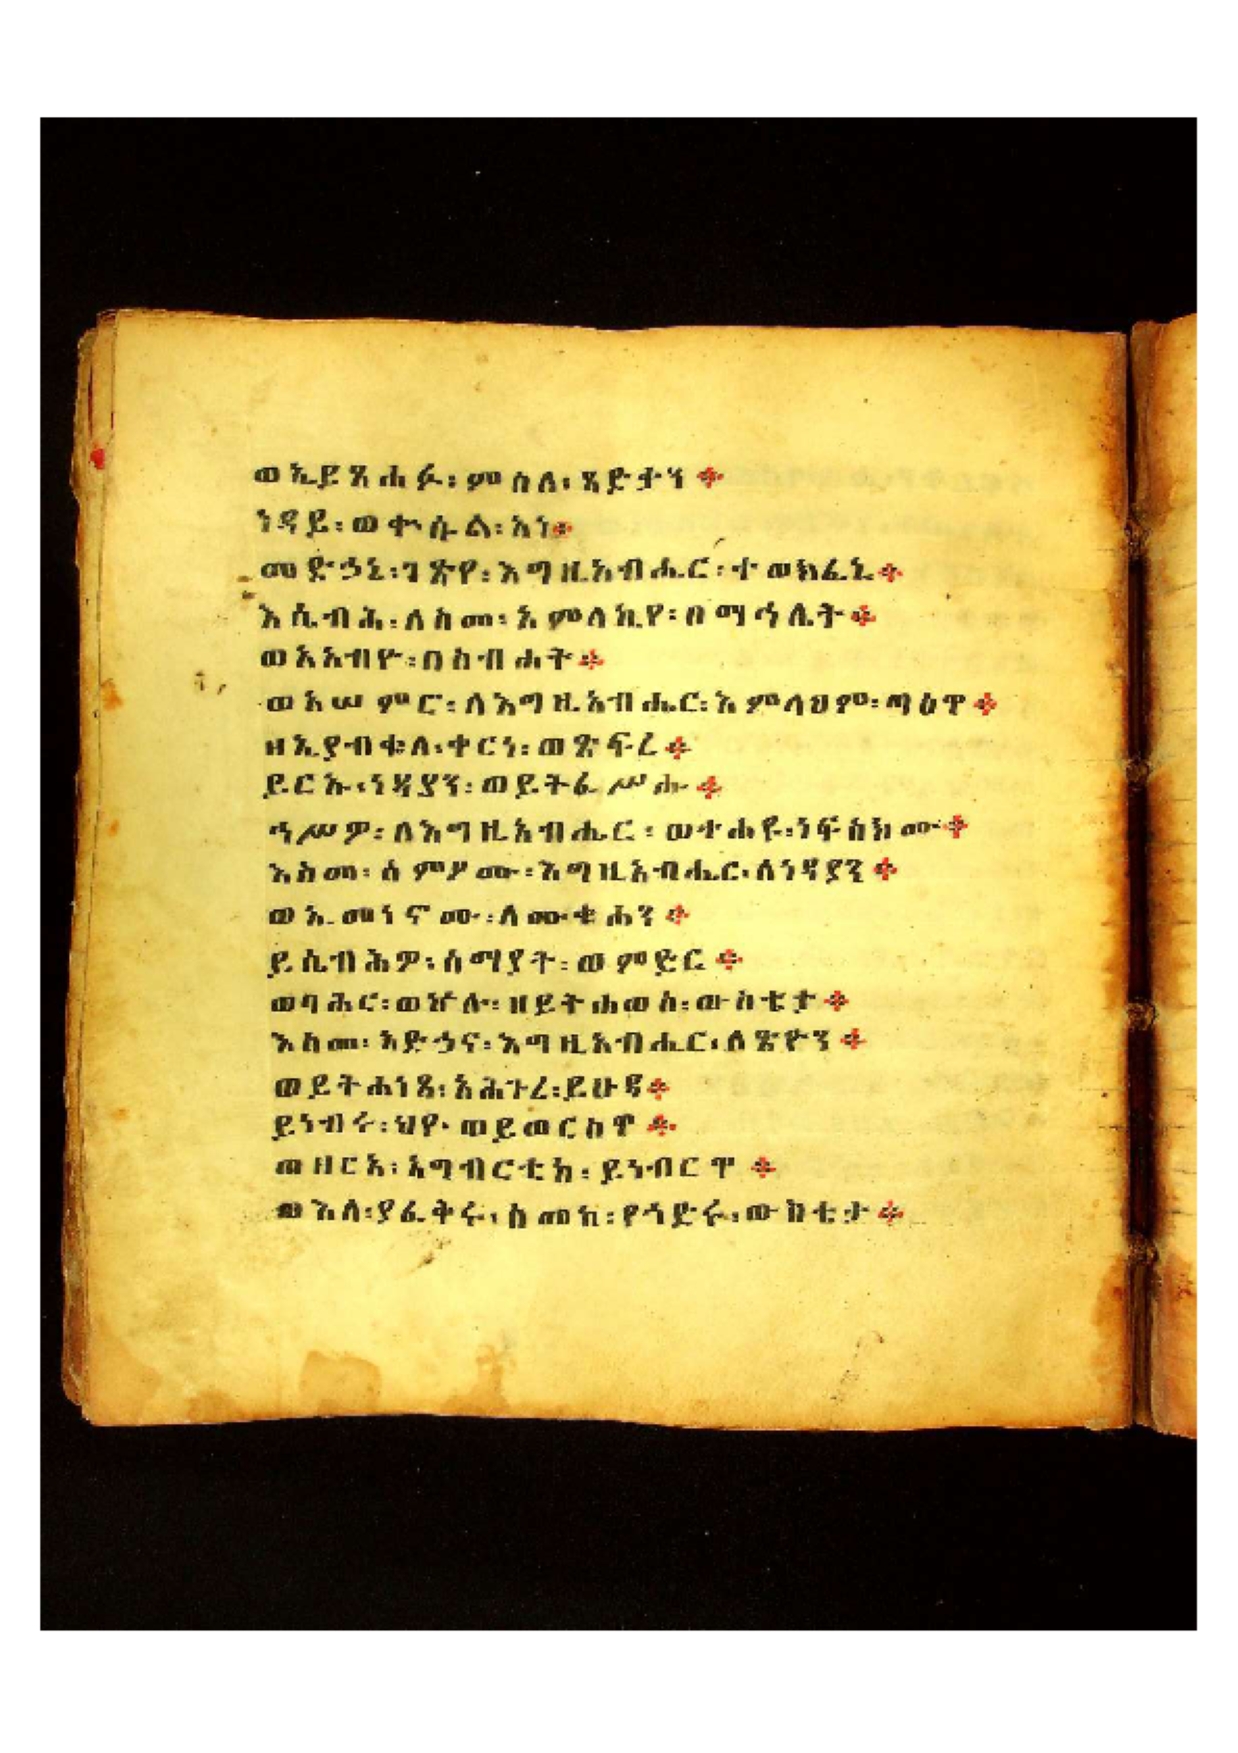 ወኢይጸሐፉ፡ ምስለ፡ ጻድቃን ፨
ነዳይ፡ ወቍሱል፡ አነ፨
መድኃኒ፡ ገጽየ፡ እግዚአብሔር፡ ተወክፈኒ ፨
እሴብሕ፡ ለስመ፡ አምላኪየ፡ በማኅሌት ፨
ወአአብዮ፡ በስብሐት ፨
ወአሠምሮ፡ ለእግዚአብሔር፡ እምላህም፡ ጣዕዋ ፨
ዘኢያብቁለ፡ ቀርነ፡ ወጽፍረ ፨
ይርአዩ፡ ነዳያን፡ ወይትፌሥሑ ፨
ኅሥዎ፡ ለእግዚአብሔር፡ ወተሐዩ፡ ነፍስክሙ ፨
እስመ፡ ሰምዖሙ፡ እግዚአብሔር፡ ለነዳያን ፨
ወኢመነኖሙ፡ ለሙቁሐን ፨
ይሴብሕዎ፡ ሰማያት፡ ወምድር ፨
ወባሕር፡ ወኵሉ፡ ዘይትሐወስ፡ ውስቴታ ፨
እስመ፡ አድኅና፡ እግዚአብሔር፡ ለጽዮን ፨
ወይትሐነጻ፡ አሕጉረ፡ ይሁዳ ፨
ይነብሩ፡ ህየ፡ ወይወርስዋ ፨
ወዘርአ፡ አግብርቲከ፡ ይነብርዋ ፨
ወእለ፡ ያፈቅሩ፡ ስመከ፡ የኀድሩ፡ ውስቴታ ፨